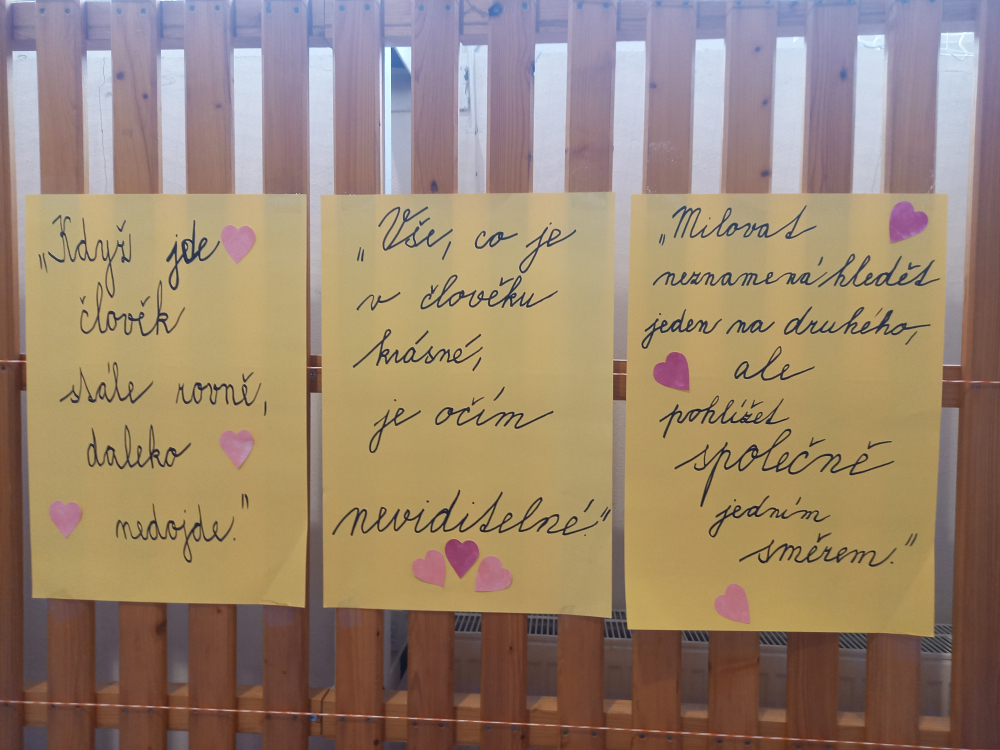 „Když jde
člověk
stále rovně,
daleko
nedojde."
„Vše, co je
v člověku
krásné,
je očím
neviditelné."
„Milovat
neznamená hledět
jeden na druhého,
ale
pohlížet
společně
jedním
směrem."